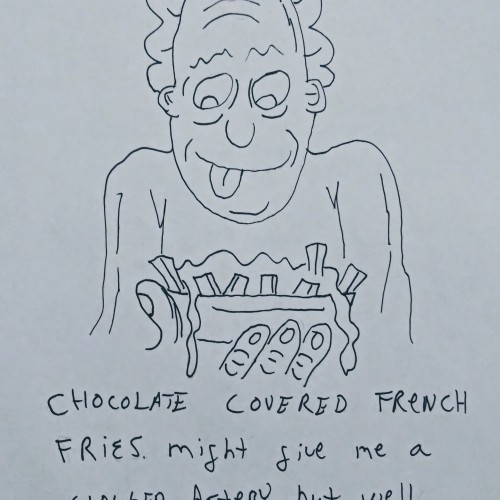 CHOCOLATE COVERED FRENCH
FRIES. might give me a
Artery but well